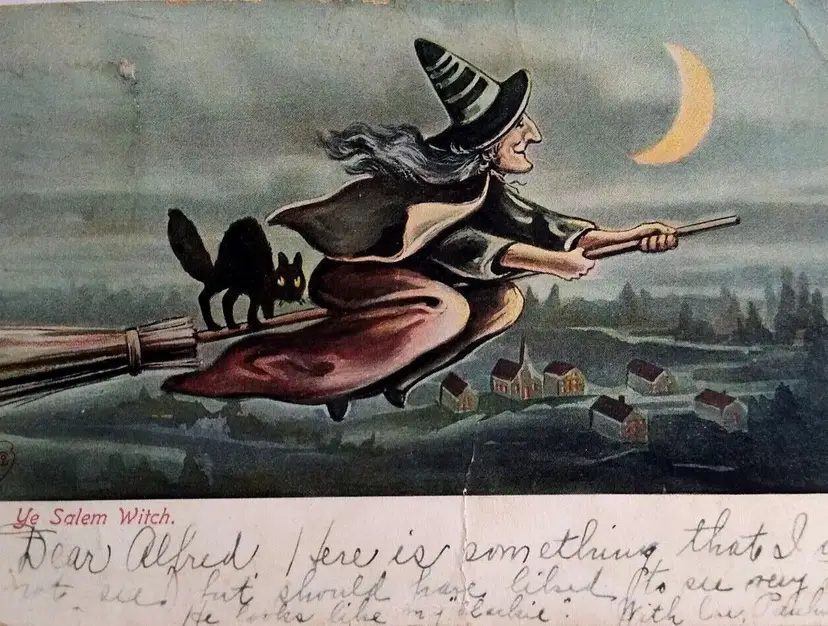 Ye Salem Witch.
Dear Alfred, Here is something that I
not see, but should have liked to see very
He looks like my "Blackie". With love,